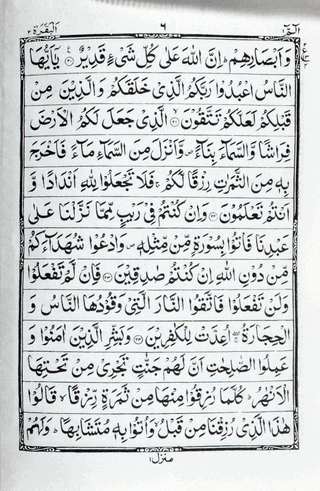 الٓمّٓ ١ ٦ البقرة ٢
وَاَبْصَارِهِمْ ؕ اِنَّ اللّٰهَ عَلٰى كُلِّ شَىْءٍ قَدِيْرٌ ۞ يٰۤاَيُّهَا
النَّاسُ اعْبُدُوْا رَبَّكُمُ الَّذِىْ خَلَقَكُمْ وَالَّذِيْنَ مِنْ
قَبْلِكُمْ لَعَلَّكُمْ تَتَّقُوْنَ ۞ الَّذِىْ جَعَلَ لَكُمُ الْاَرْضَ
فِرَاشًا وَّالسَّمَآءَ بِنَآءً ۪ وَّاَنْزَلَ مِنَ السَّمَآءِ مَآءً فَاَخْرَجَ
بِهٖ مِنَ الثَّمَرٰتِ رِزْقًا لَّكُمْ ۚ فَلَا تَجْعَلُوْا لِلّٰهِ اَنْدَادًا وَّ
اَنْتُمْ تَعْلَمُوْنَ ۞ وَاِنْ كُنْتُمْ فِىْ رَيْبٍ مِّمَّا نَزَّلْنَا عَلٰى
عَبْدِنَا فَاْتُوْا بِسُوْرَةٍ مِّنْ مِّثْلِهٖ ۪ وَادْعُوْا شُهَدَآءَكُمْ
مِّنْ دُوْنِ اللّٰهِ اِنْ كُنْتُمْ صٰدِقِيْنَ ۞ فَاِنْ لَّمْ تَفْعَلُوْا
وَلَنْ تَفْعَلُوْا فَاتَّقُوا النَّارَ الَّتِىْ وَقُوْدُهَا النَّاسُ وَ
الْحِجَارَةُ ۖ اُعِدَّتْ لِلْكٰفِرِيْنَ ۞ وَبَشِّرِ الَّذِيْنَ اٰمَنُوْا وَ
عَمِلُوا الصّٰلِحٰتِ اَنَّ لَهُمْ جَنّٰتٍ تَجْرِىْ مِنْ تَحْتِهَا
الْاَنْهٰرُ ؕ كُلَّمَا رُزِقُوْا مِنْهَا مِنْ ثَمَرَةٍ رِّزْقًا ۙ قَالُوْا
هٰذَا الَّذِىْ رُزِقْنَا مِنْ قَبْلُ ۙ وَاُتُوْا بِهٖ مُتَشَابِهًا ؕ وَلَهُمْ
منزل ١